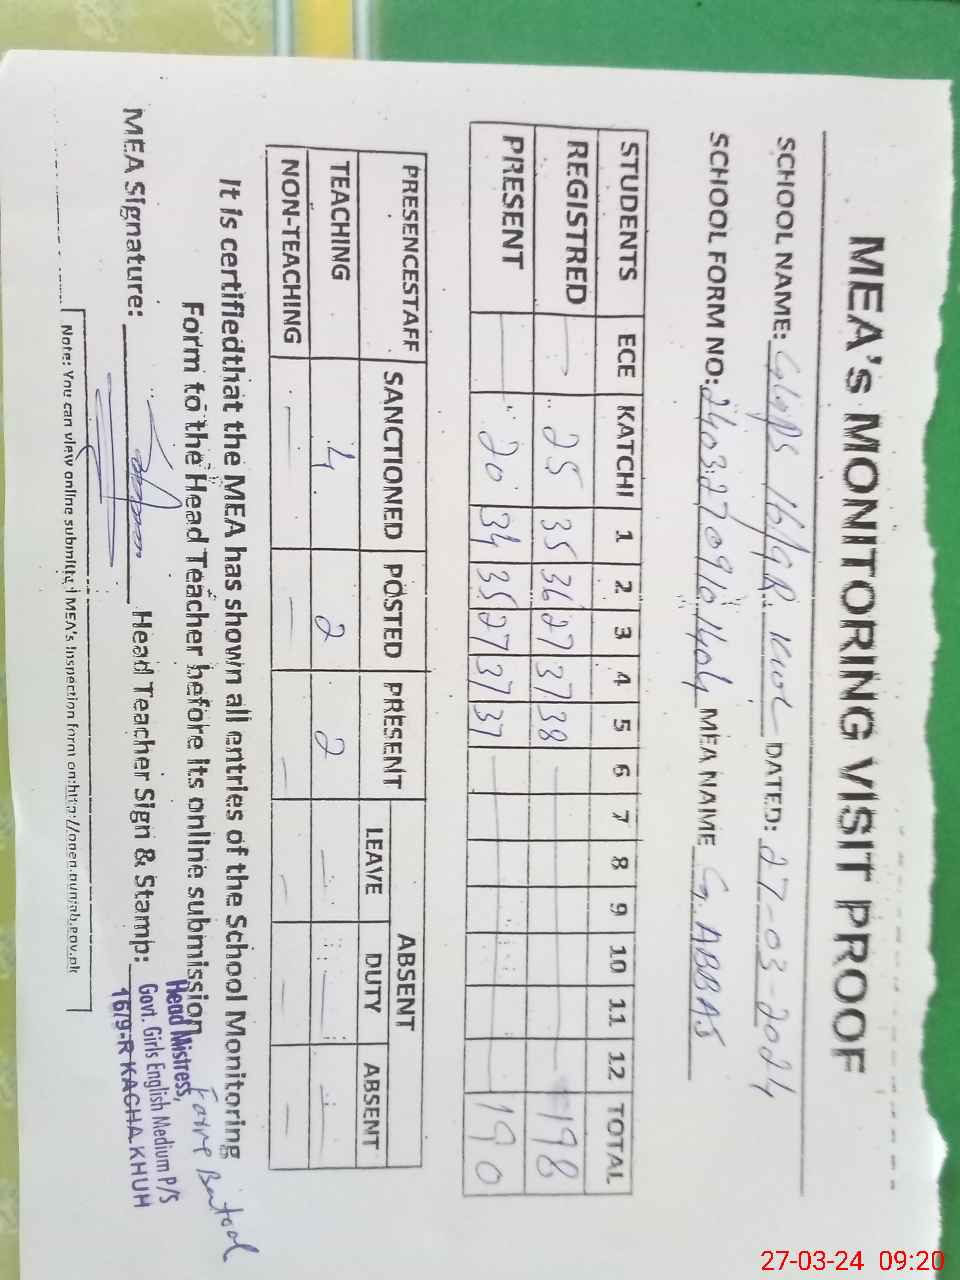 MEA's MONITORING VISIT PROOF
SCHOOL NAME: GGPS 16/9R DATED: 27-03-2024
SCHOOL FORM NO: MEA NAME G. ABBAS
STUDENTS ECE KATCHI 1 2 3 4 5 6 7 8 9 10 11 12 TOTAL
REGISTRED — 25 35 36 27 37 38 — 198
PRESENT — 20 34 35 27 37 37 — 190
PRESENCESTAFF SANCTIONED POSTED PRESENT ABSENT
LEAVE DUTY ABSENT
TEACHING 4 2 2 — — —
NON-TEACHING — — — — — —
It is certifiedthat the MEA has shown all entries of the School Monitoring
Form to the Head Teacher before its online submission
MEA Signature: Head Teacher Sign & Stamp:
Batool
Head Mistress,
Govt. Girls English Medium P/S
16/9-R KACHA KHUH
Note: You can view online submitted MEA's Inspection form on:http://open.punjab.gov.pk
27-03-24 09:20